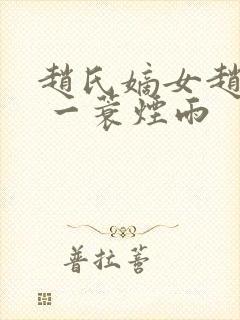 趙氏嫡女趙
一蓑煙雨
普拉薈